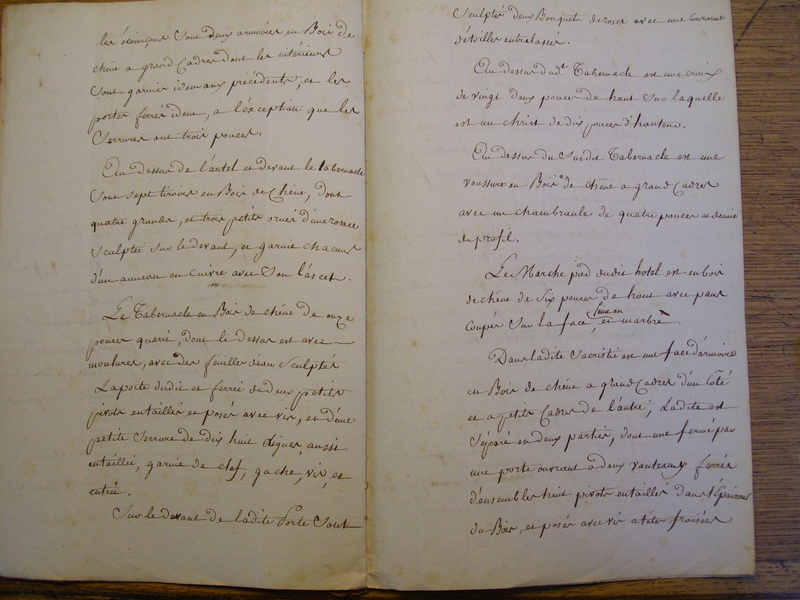 les écoinçons Sous deux armoires en Bois de
chêne a grand Cadres dont les intérieurs
Sont garnies idem aux précédents, et les
portes ferrés idem, a l'éxception que les
Serrures ont trois pouces.
Au dessus de l'autel et devant le tabernacle
Sont sept tiroirs en Bois de Chêne, dont
quatre grands, et trois petits ornés d'une rosace
Sculptée sur le devant, et garnie chacuns
d'un anneau en cuivre avec Son
Le Tabernacle en Bois de chêne de onze
pouces quaré, dont le dessus est avec
moulures, avec des feuilles d'eau Sculptés
La porte dudit est ferrée de deux petits
pivots entaillés et posés avec vis, et d'une
petite Serrure de dix huit lignes, aussi
entaillée, garnie de clef, gache, vis, et
entrée.
Sur le devant de ladite Porte Sont
Sculptés deux Bouquets de roses avec une Couronne
d'étoilles entrelassés.
Au dessus dudt Tabernacle est une croix
de vingt deux pouces de haut Sur laquelle
est un christ de dix pouces d'hauteur.
Au dessus du Susdit Tabernacle est une
voussure en Bois de chêne a grand Cadres
avec un chambranle de quatre pouces et demie
de profil.
Le Marche pied dudit hotel est en bois
de chêne de Six pouces de haut avec pans
Coupés Sur la face, et marbré
Dans ladite Sacristie est une face d'armoire
en Bois de chêne a grand Cadres d'un côté
et a petits Cadres de l'autre, Ladite est
Séparé en deux parties, dont une fermé par
une porte ouvrant a deux vanteaux ferrés
d'ensembles huit pivots entaillés dans l'épaisseur
du Bois, et posés avec vis a têtes froisées